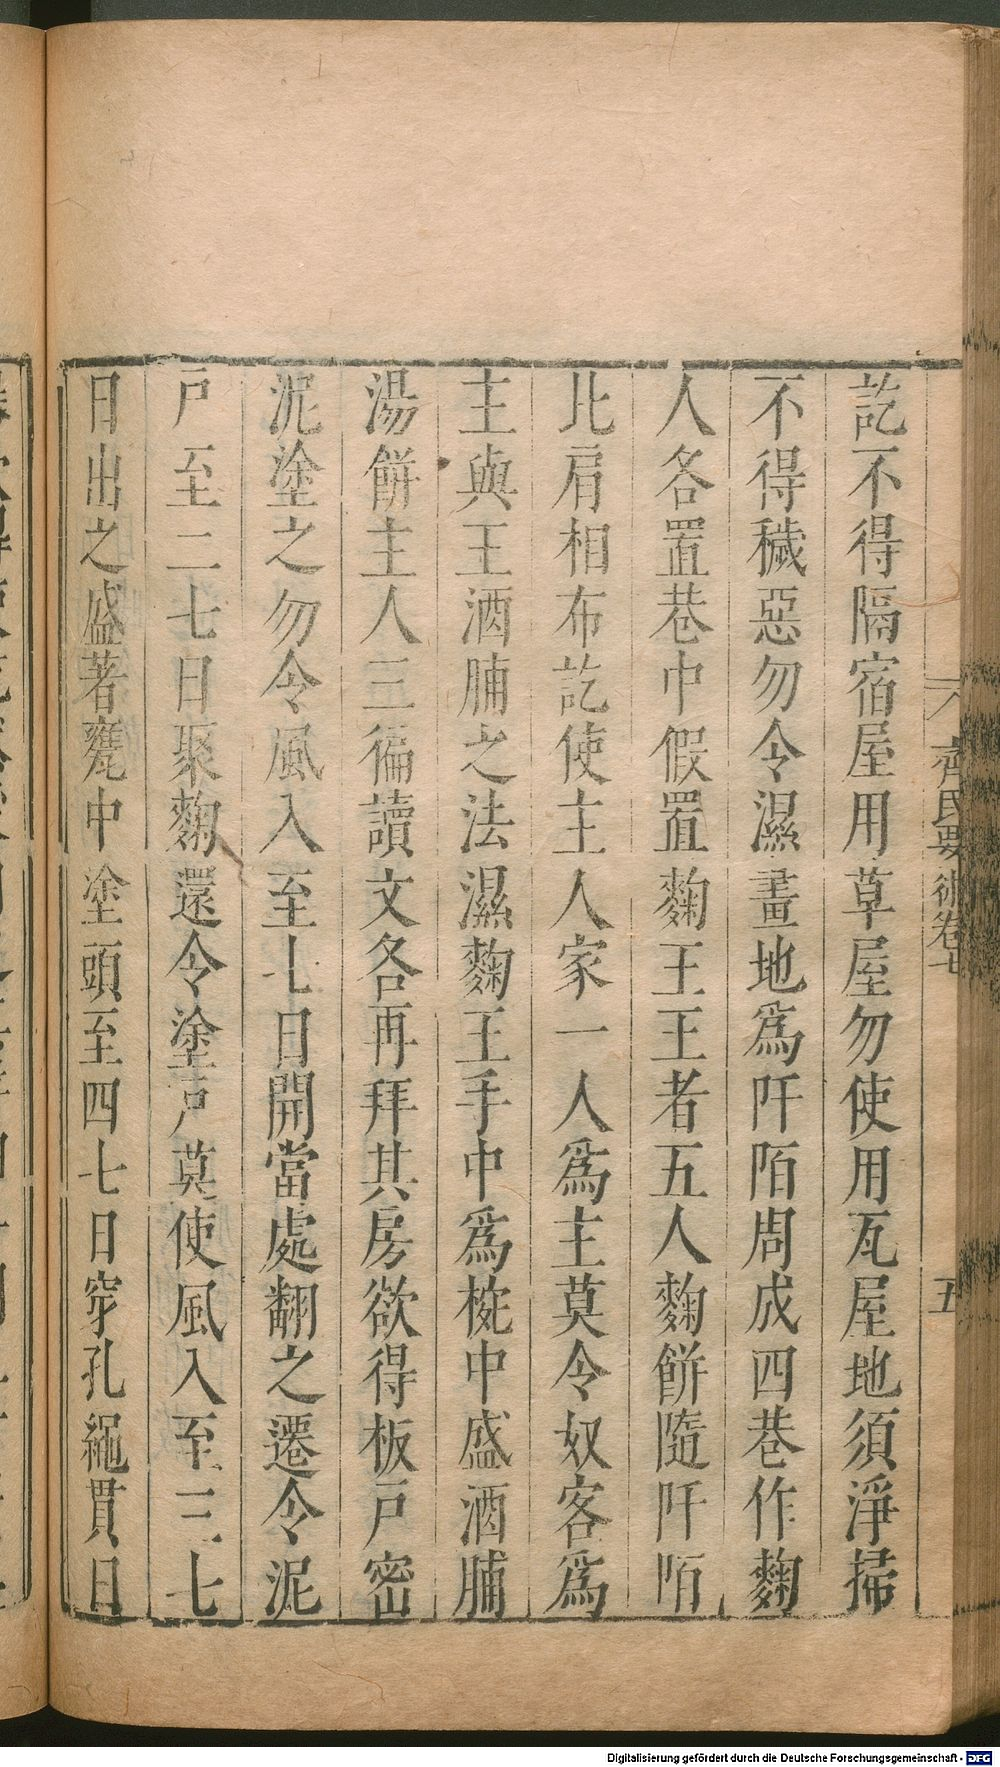 訖不得隔宿屋用草屋勿使用瓦屋地須淨掃
不得穢惡勿令濕畫地爲阡陌周成四巷作麴
人各置巷中假置麴王王者五人麴餅隨阡陌
比肩相布訖使主人家一人爲主莫令奴客爲
主與王酒脯之法濕麴王手中爲椀中盛酒脯
湯餅主人三徧讀文各再拜其房欲得板戸密
泥塗之勿令風入至七日開當處翻之還令泥
戸至二七日聚麴還令塗戸莫使風入至三七
日出之盛著甕中塗頭至四七日穿孔繩貫日
齊民要術卷七
五
Digitalisierung gefördert durch die Deutsche Forschungsgemeinschaft - DFG